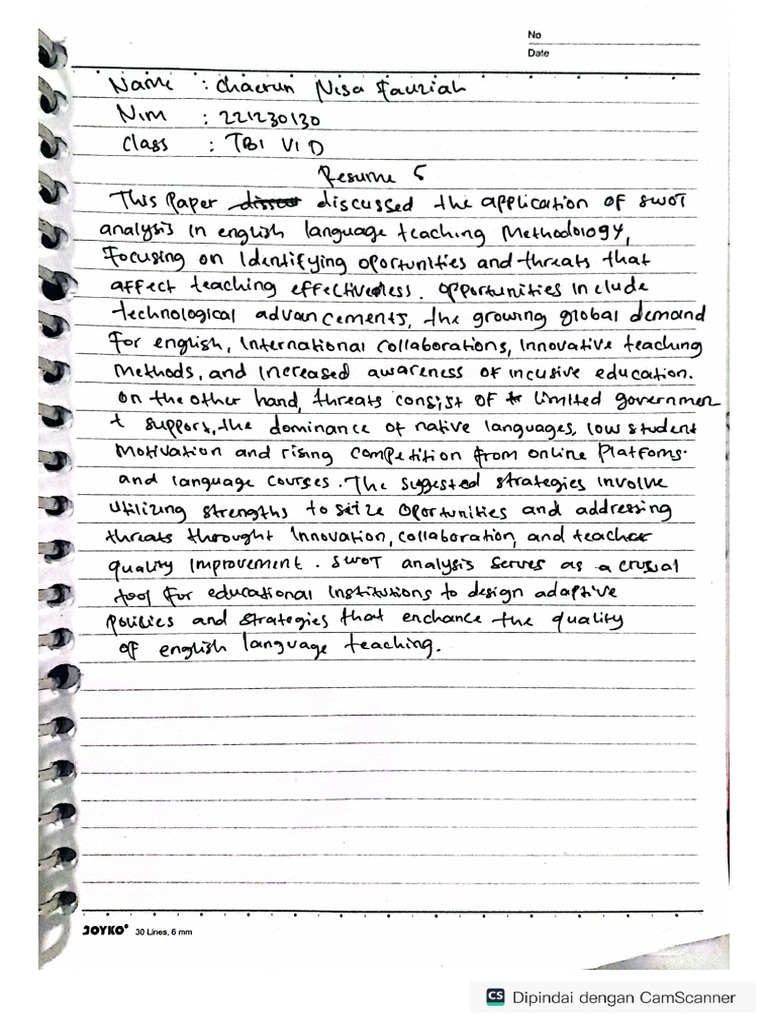 No
Date
Name : Chaerun Nisa Fauziah
Nim : 221230130
Class : TBI VI D
Resume 5
This Paper discussed the application of SWOT
analysis in english language teaching Methodology,
Focusing on Identifying oportunities and threats that
affect teaching effectiveness. opportunities Include
technological advancements, the growing global demand
For english, International collaborations, Innovative teaching
Methods, and Increased awareness of incusive education.
on the other hand, threats consist of limited governmen
t support, the dominance of native languages, low student
Motivation and rising competition from online Platfoms.
and language courses. The suggested strategies involve
utilizing strengths to seize oportunities and addressing
threats throught Innovation, collaboration, and teacher
quality Improvement. SWOT analysis serves as a crusial
tool for educational Institusions to design adaptive
policies and strategies that enchance the quality
of english language teaching.
JOYKO® 30 Lines, 6 mm
CS Dipindai dengan CamScanner